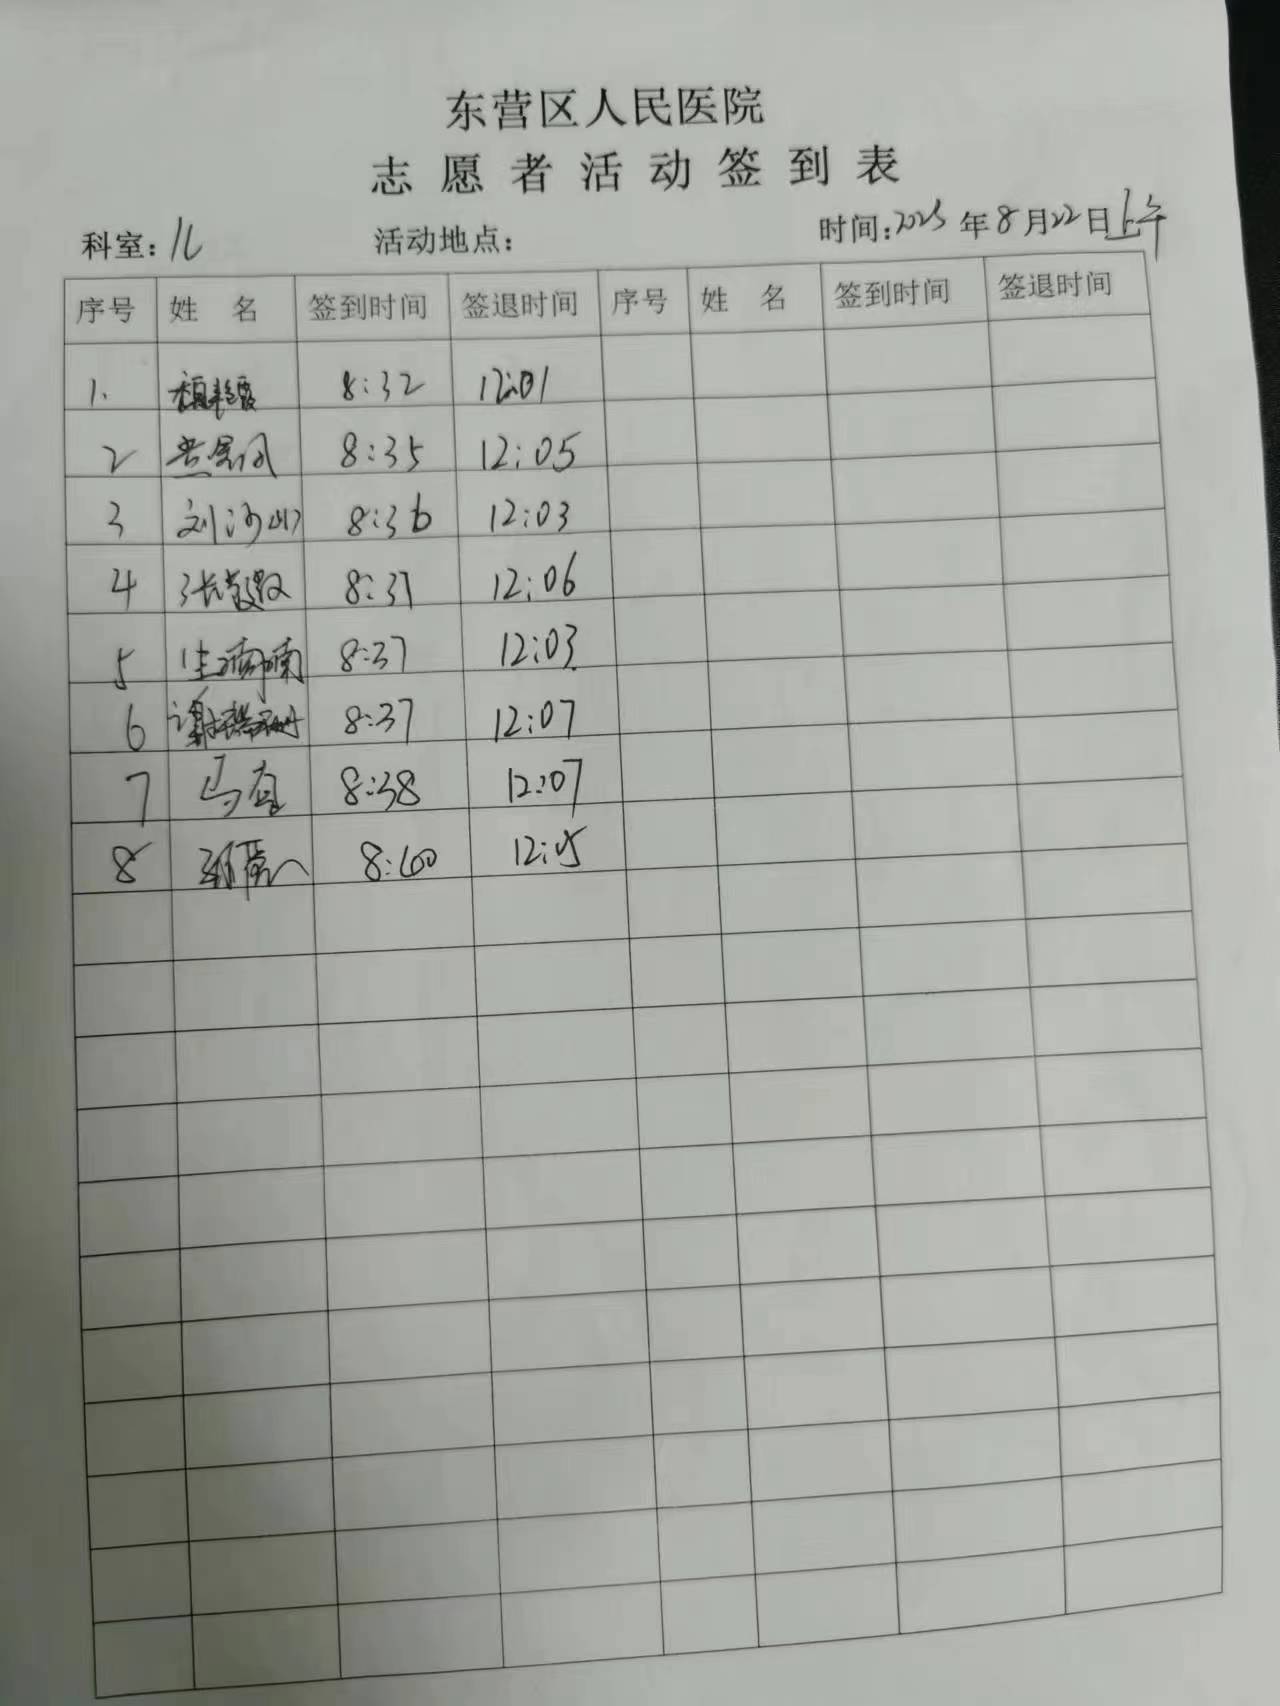 东营区人民医院
志愿者活动签到表
科室：儿 活动地点： 时间：2025年8月22日上午
序号 姓名 签到时间 签退时间 序号 姓名 签到时间 签退时间
1. 8:32 12:01
2 8:35 12:05
3 刘 8:36 12:03
4 张 8:37 12:06
5 8:37 12:03
6 谢 8:37 12:07
7 马 8:38 12:07
8 8:40 12:05